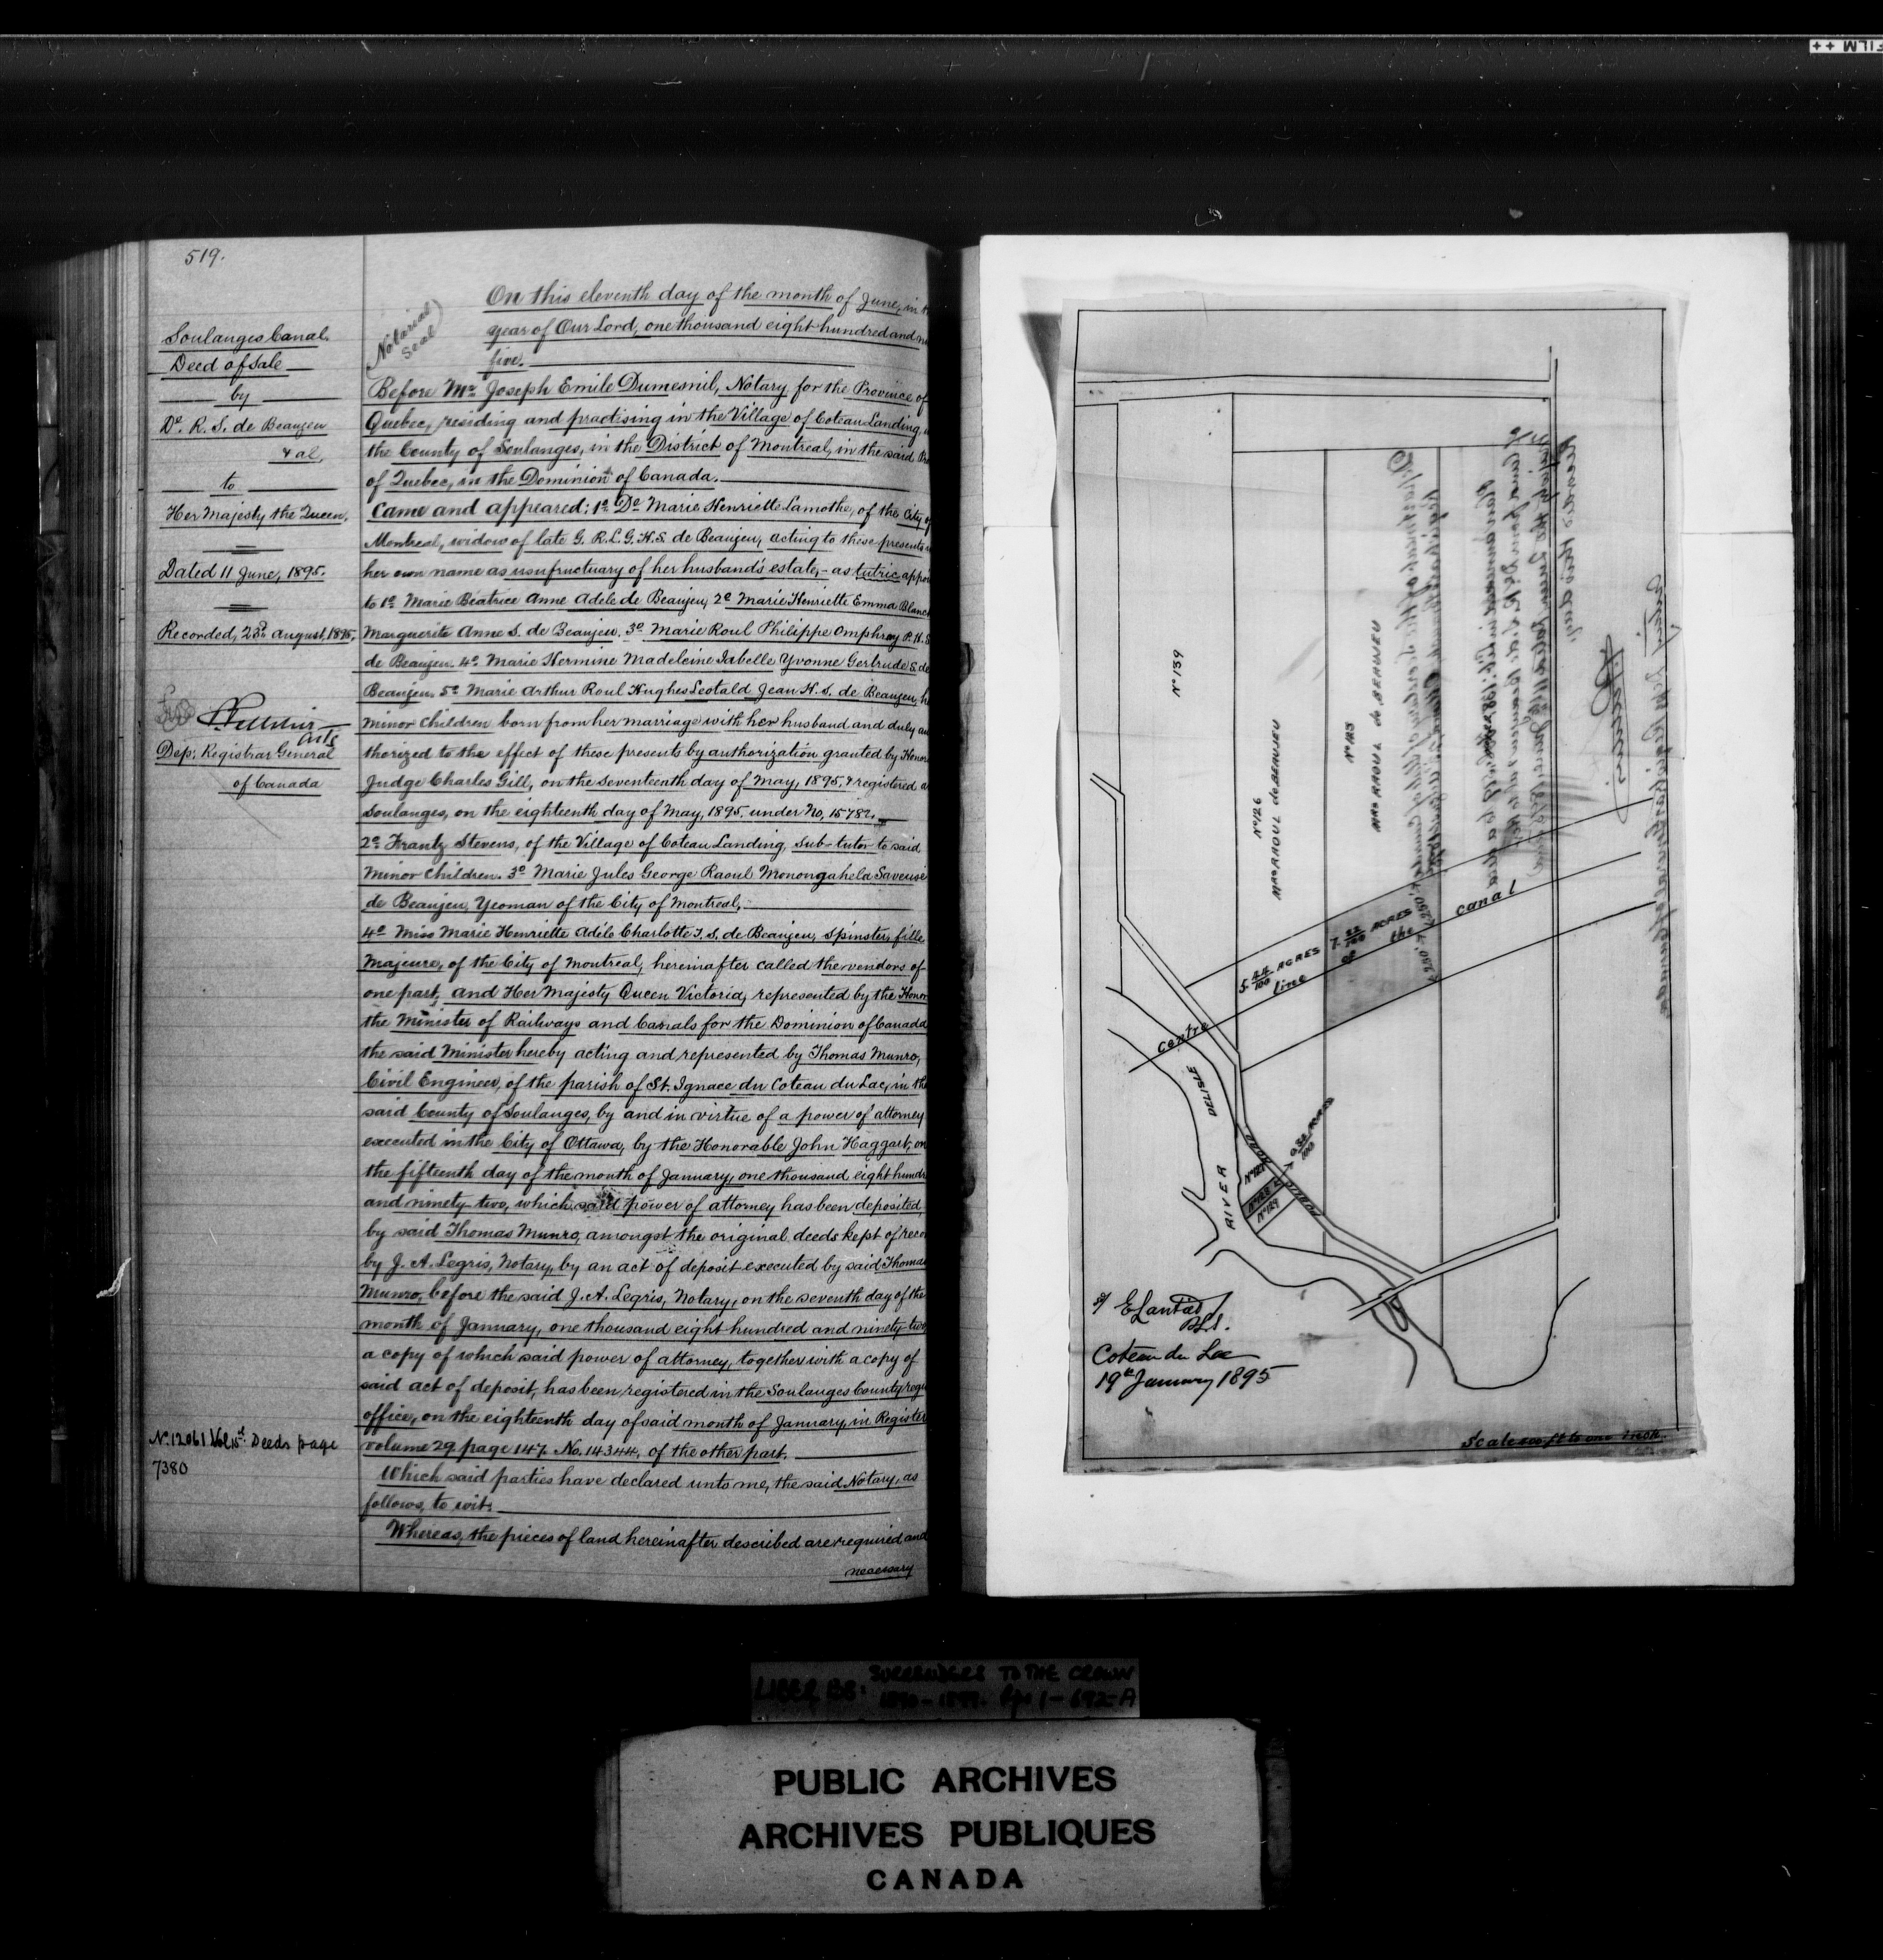 519.
Soulanges Canal.
Deed of Sale
by
De. R. S. de Beaujeu
& al,
to
Her Majesty the Queen.
Dated 11 June, 1895.
Recorded, 23d August, 1895.
Acts
Dep: Registrar General
of Canada
No. 12061 Vol 15th Deeds page
7380
Notarial
Seal
On this eleventh day of the month of June, in
year of Our Lord, one thousand eight hundred and
five.
Before Mr. Joseph Emile Dumesnil, Notary for the Province of
Quebec, residing and practising in the Village of Coteau Landing,
the County of Soulanges, in the District of Montreal, in the said
of Quebec, in the Dominion of Canada.
Came and appeared: 1o. De Marie Henriette Lamothe, of the City of
Montreal, widow of late G. R. L. G. H. S. de Beaujeu, acting to these presents
her own name as usufructuary of her husband's estate, - as tutrix
to 1o Marie Béatrice Anne Adele de Beaujeu, 2o Marie Henriette Emma
Marguerite Anne S. de Beaujeu. 3o Marie Roul Philippe Omphray P. H. S
de Beaujeu. 4o Marie Hermine Madeleine Isabelle Yvonne Gertrude S. de
Beaujeu. 5o Marie Arthur Roul Hughes Leotald Jean H. S. de Beaujeu,
minor children born from her marriage with her husband and duly au
thorized to the effect of these presents by authorization granted by
Judge Charles Gill, on the seventeenth day of May, 1895, & registered
Soulanges, on the eighteenth day of May, 1895. under No. 15782.
2o Frantz Stevens, of the Village of Coteau Landing, sub-tutor to said
minor children. 3o Marie Jules George Raoul Monongahela Saveuse
de Beaujeu, Yeoman of the City of Montreal.
4o Miss Marie Henriette Adèle Charlotte I. S. de Beaujeu, Spinster, fille
Majeure, of the City of Montreal, hereinafter called the vendors of
one part, and Her Majesty Queen Victoria, represented by the
the Minister of Railways and Canals for the Dominion of Canada
the said Minister hereby acting and represented by Thomas Munro,
Civil Engineer, of the parish of St. Ignace du Coteau du Lac, in the
said County of Soulanges, by and in virtue of a power of attorney
executed in the City of Ottawa, by the Honorable John Haggart, on
the fifteenth day of the month of January, one thousand eight
and ninety-two, which said power of attorney has been deposited,
by said Thomas Munro, amongst the original deeds kept of
by J. A. Legris, Notary, by an act of deposit executed by said Thomas
Munro, before the said J. A. Legris, Notary, on the seventh day of the
month of January, one thousand eight hundred and ninety-two
a copy of which said power of attorney, together with a copy of
said act of deposit, has been registered in the Soulanges County
office, on the eighteenth day of said month of January, in Register
volume 29 page 147. No. 14344. of the other part.
Which said parties have declared unto me, the said Notary, as
follows, to wit:
Whereas, the pieces of land hereinafter described are required and
necessary
No 139
No 126
Mrs RAOUL de BEAUJEU
No 125
Mrs RAOUL de BEAUJEU
5. 44/100 ACRES
7. 22/100 ACRES
centre line of the canal
RIVER DELISLE
PUBLIC ROAD
No 127
No 128
No 129
Coteau du Lac
19th January 1895
Scale 400 ft to one inch.
LIBER BB: SURRENDERS TO THE CROWN
1890-1899. 1-692-A
PUBLIC ARCHIVES
ARCHIVES PUBLIQUES
CANADA
FILM ++